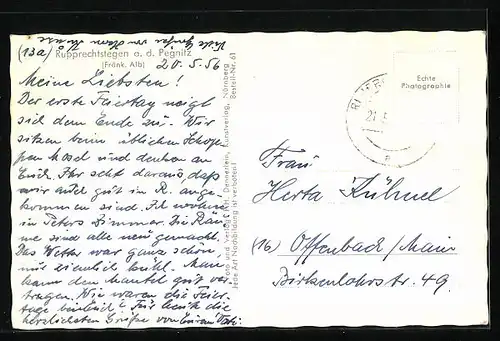 Viele Grüße von
(13a) Rupprechtstegen a. d. Pegnitz
(Fränk. Alb) 20.5.56
Meine Liebsten!
Der erste Feiertag neigt
sich dem Ende zu. Wir
sitzen beim üblichen Schop-
pen Mosel und denken an
Euch. Ihr seht daraus, daß
wir alle gut in R. ange-
kommen sind. Ich wohne
in Peters Zimmer. Die Räu-
me sind alle neu gemacht.
Das Wetter war ganz schön,
nur ziemlich kühl. Man
kann den Mantel gut ver-
tragen. Wie waren die Feier-
tage Für heute die
herzlichsten Grüße von Eurem Vati.
Foto und Verlag Kunstverlag, Nürnberg
Jede Art Nachbildung ist verboten Bestell-Nr. 61
Echte
Photographie
Frau
Herta Kühnel
(16) Offenbach/Main
Birkenlohrstr. 49.